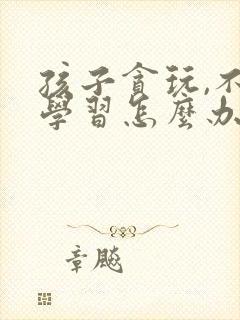 孩子貪玩,不
學習怎麼办
章飚